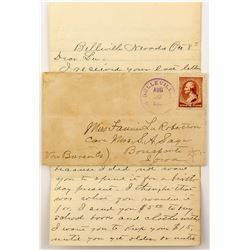 Belleville Nevada Oct 8th
Dear Sue,
I received your last letter
BELLEVILLE
AUG
Miss Fannie L. Robertson
Care Mrs. S. A. Sage
(Van Buren Co) Bonaparte
Iowa
because I did not
you to spend it for a birth
day present. I thought that
was what you wanted it
for. I send you $5.00 to buy
school books and clothes with
I want you to keep your $15
until you get older or until